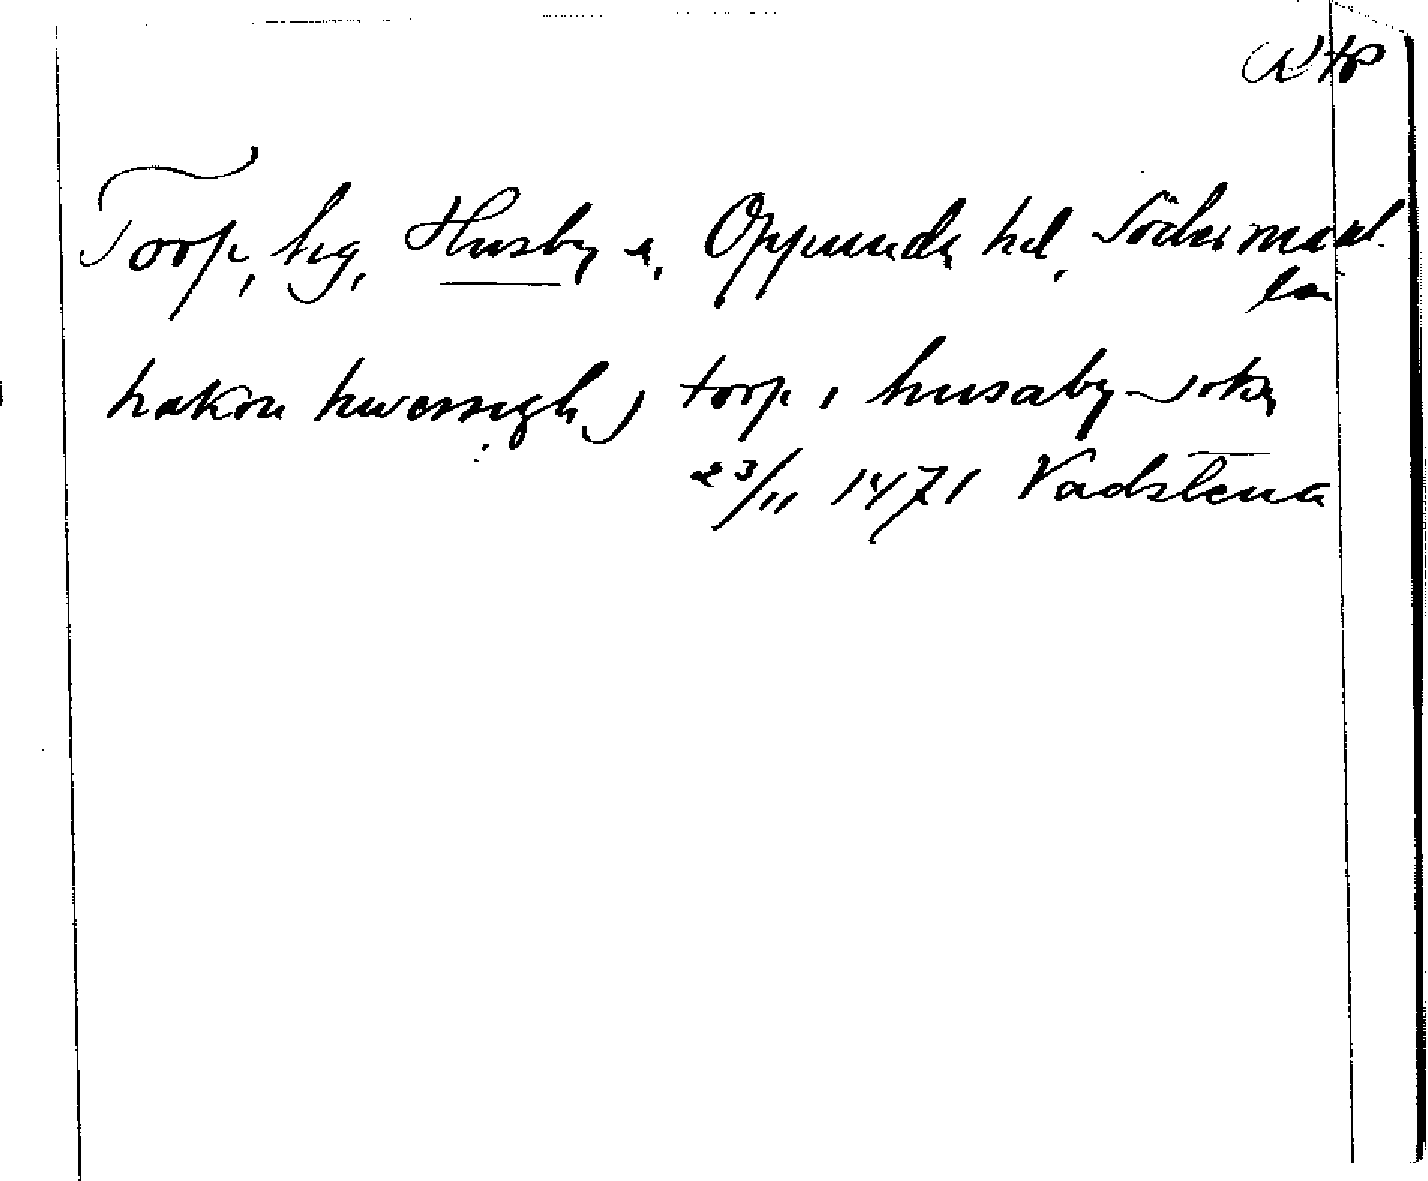 Torp, hg, Husby s, Oppunda hd, Södermanl.
län
hakon hwersizgh j torp i husaby sokn
23/11 1471 Vadstena